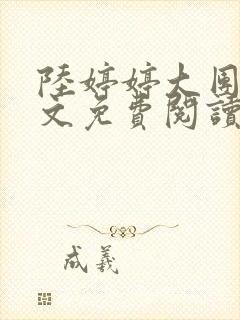 陸婷婷大團
文免費閱讀
成羲